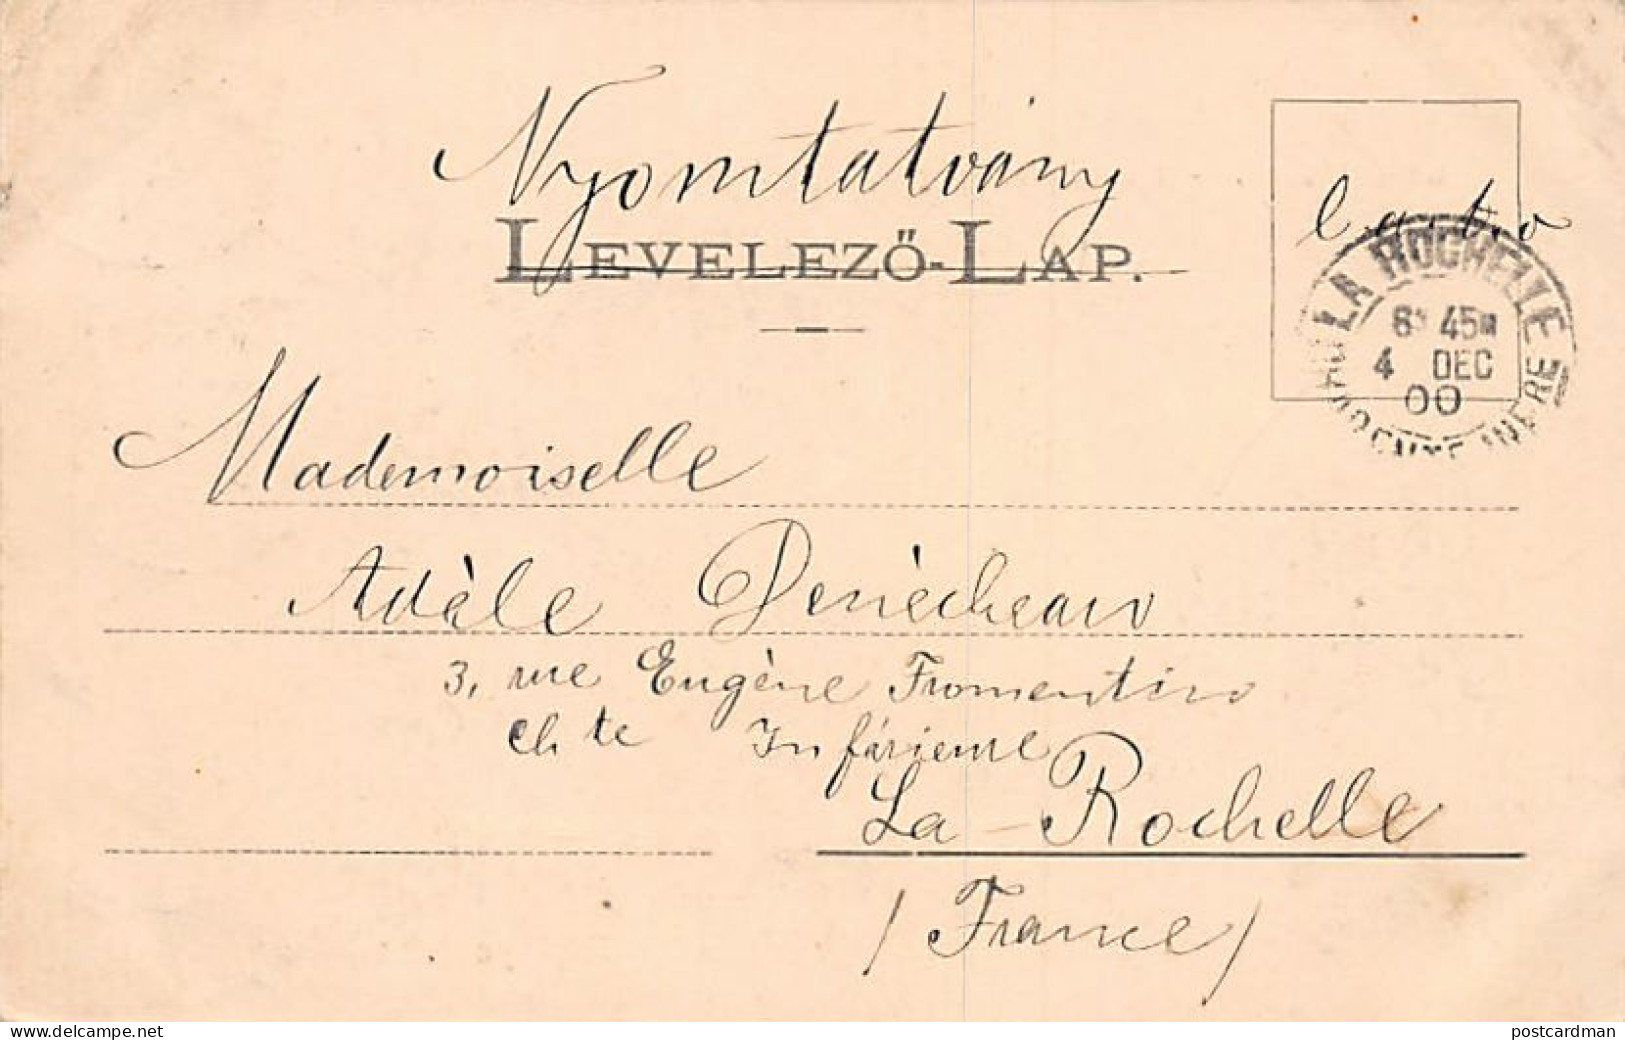 Nyomtatvány
LEVELEZŐ-LAP.
LA ROCHELLE
45M
4 DEC
00
INFRE
Mademoiselle
Adèle Denécheau
3, rue Eugène Fromentin
Ch te Inférieure
La-Rochelle
(France)
www.delcampe.net
postcardman